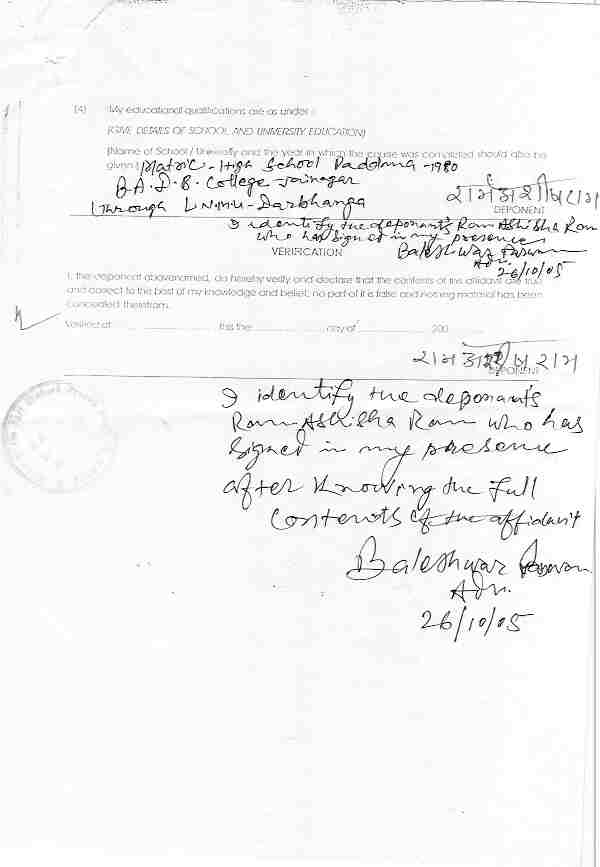 (4) My educational qualifications are as under :
(GIVE DETAILS OF SCHOOL AND UNIVERSITY EDUCATION)
(Name of School / University and the year in which the course was completed should also be
given.) Matric - High School Paddma - 1980
B.A. D.B. College Jainagar
through L.N.M.U - Darbhanga
DEPONENT
I identify the deponant's Ram Ashisha Ram
who has signed in my presence
VERIFICATION
Baleshwar Paswan
Adv.
26/10/05
I, the deponent abovenamed, do hereby verify and declare that the contents of this affidavit are true
and correct to the best of my knowledge and belief, no part of it is false and nothing material has been
concealed therefrom.
Verified at this the day of 200
राम आशीष राम
DEPONENT
I identify the deponant's
Ram Ashisha Ram who has
signed in my presence
after knowing the full
contents of the affidavit
Baleshwar Paswan
Adv.
26/10/05